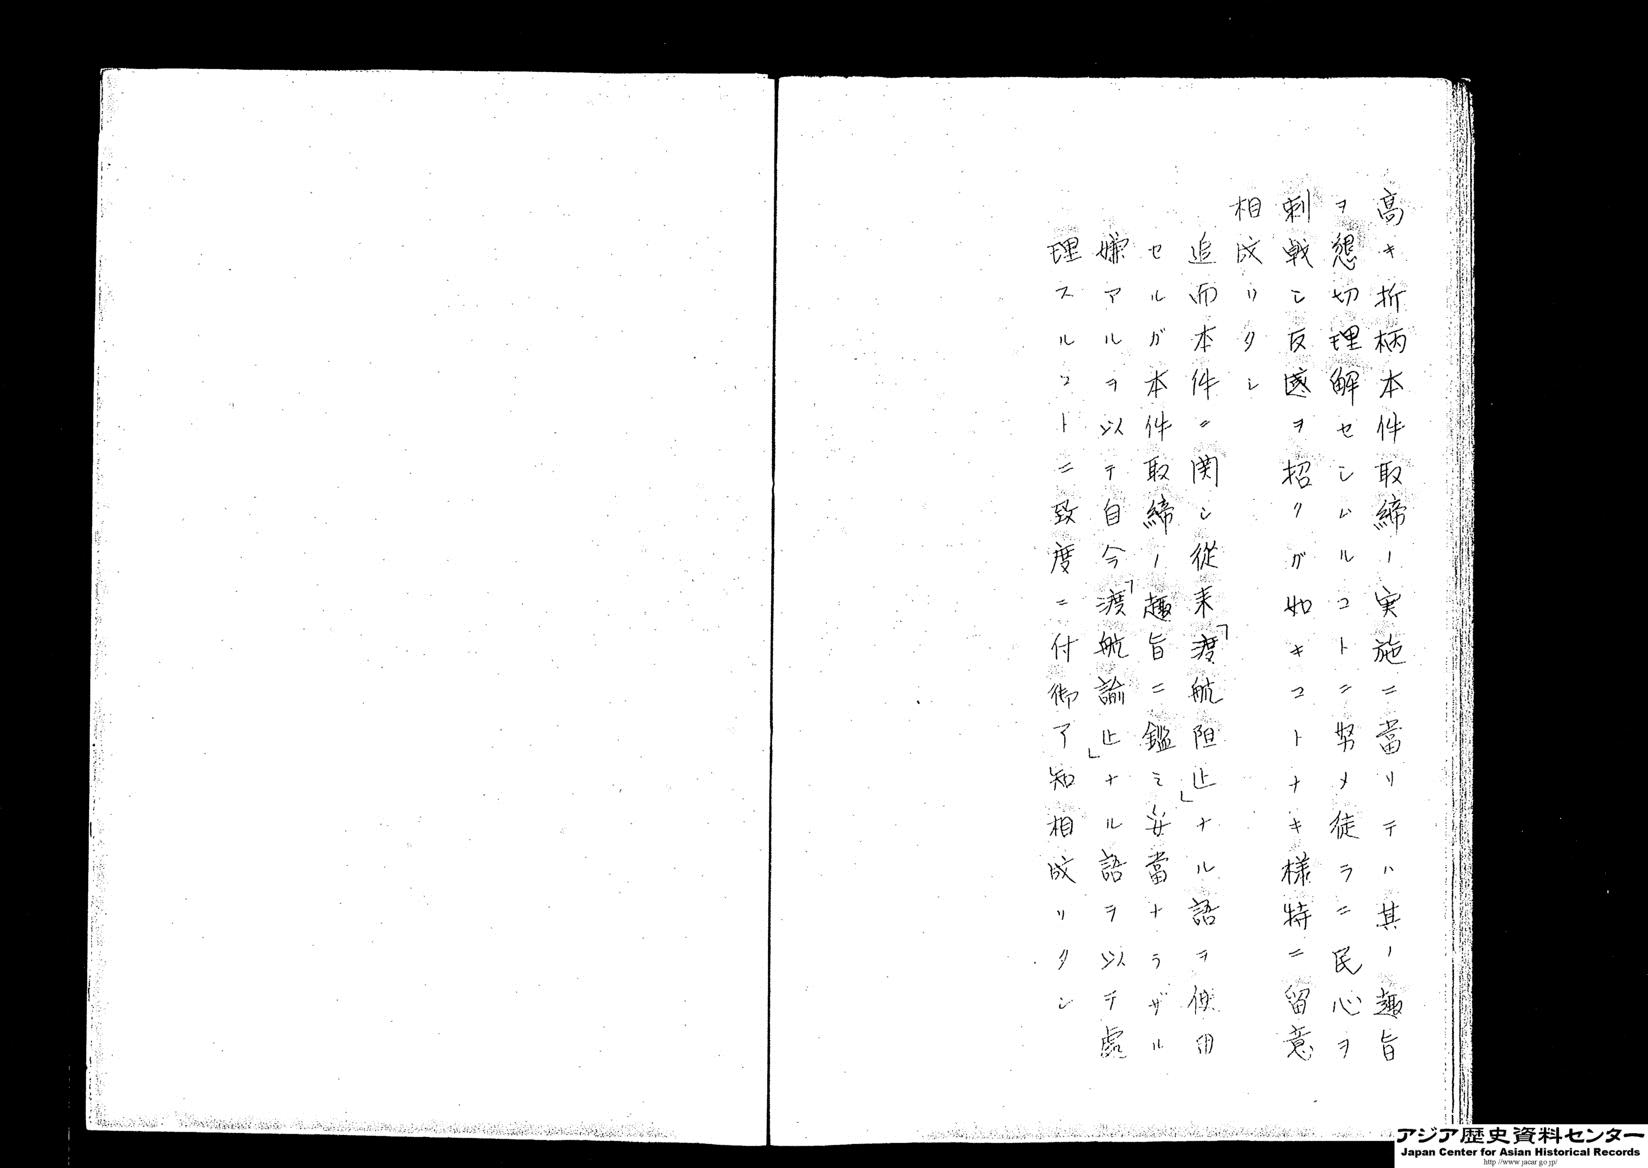 高キ折柄本件取締ノ実施ニ當リテハ其ノ趣旨
ヲ懇切理解セシムルコトニ努メ徒ラニ民心ヲ
刺戟シ反感ヲ招クガ如キコトナキ様特ニ留意
相成リタシ
追而本件ニ関シ従来「渡航阻止」ナル語ヲ使用
セルガ本件取締ノ趣旨ニ鑑ミ妥當ナラザル
嫌アルヲ以テ自今「渡航諭止」ナル語ヲ以テ處
理スルコトニ致度ニ付御了知相成リタシ
アジア歴史資料センター
Japan Center for Asian Historical Records
http://www.jacar.go.jp/